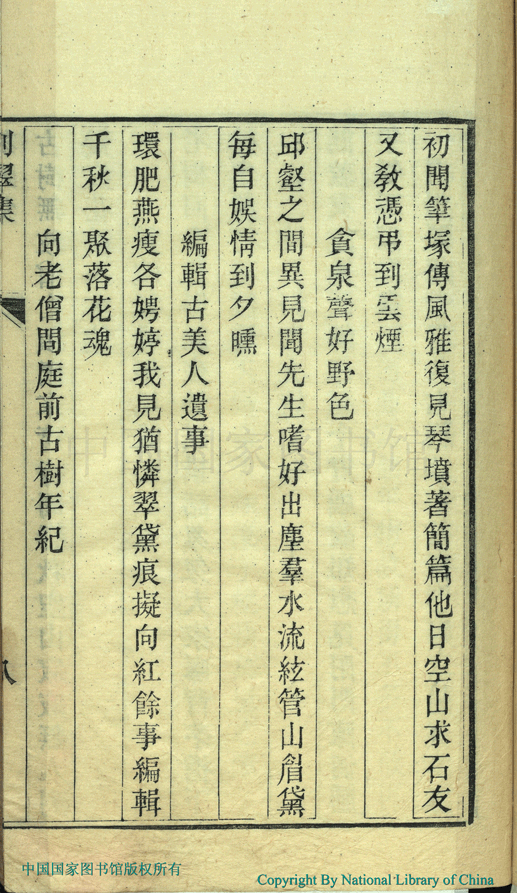 初聞筆塚傳風雅復見琴墳著簡篇他日空山求石友
又敎憑弔到雲煙
貪泉聲好野色
邱壑之間異見聞先生嗜好出塵羣水流絃管山眉黛
每自娛情到夕曛
編輯古美人遺事
環肥燕瘦各娉婷我見猶憐翠黛痕擬向紅餘事編輯
千秋一聚落花魂
向老僧問庭前古樹年紀
八
中国国家图书馆
中国国家图书馆版权所有
Copyright By National Library of China